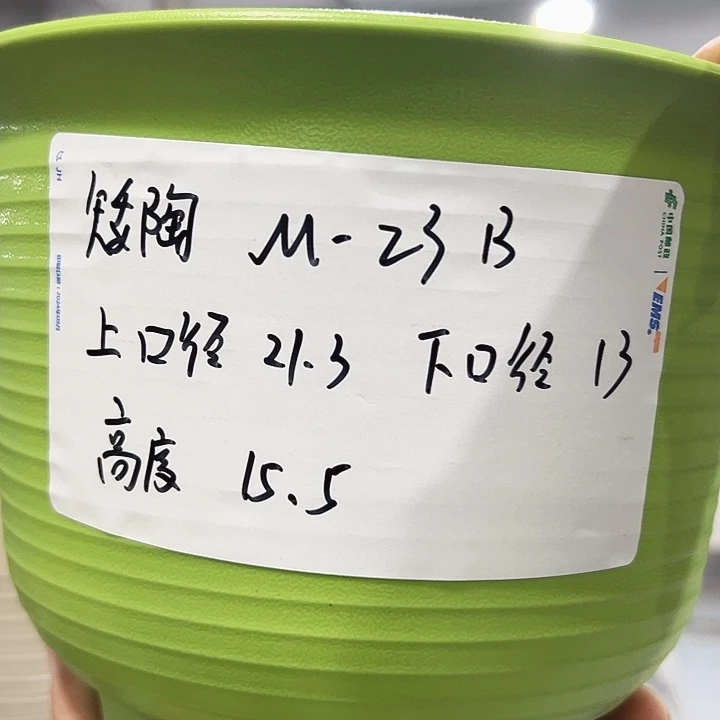 矮陶 M-23 B
上口径 21.3 下口径 13
高度 15.5
中国邮政
CHINA POST
EMS